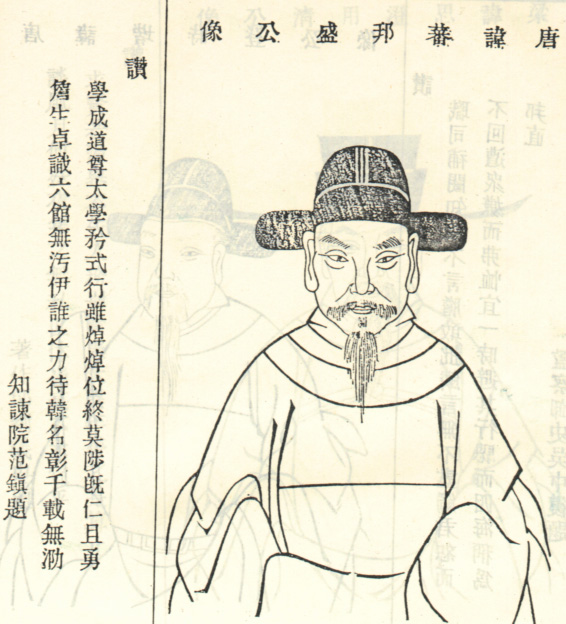 唐諱蕃邦盛公像
讚
學成道尊太學矜式行雖焯焯位終莫陟旣仁且勇
詹生卓識六館無汚伊誰之力待韓名彰千載無泐
知諫院范鎮題